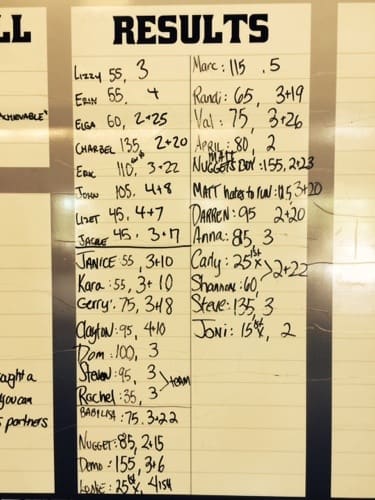 LL
RESULTS
ACHIEVABLE"
Lizzy 55, 3
ERIN 55, 4
ELGA 60, 2+25
CHARBEL 135, 2+20
ERIC 110, 3+22
JOHN 105, 4+8
LIZET 45, 4+7
JACKIE 45, 3+7
JANICE: 55, 3+10
Kara: 55, 3+10
Gerry: 75, 3+18
Clayton: 95, 4+10
Dom: 100, 3
Steven: 95, 3
Rachel: 35, 3
team
BABILISA: 75. 3+22
NUGGET: 85, 2+15
Demo: 155, 3+6
25lb x, 4ish
Marc: 115, 5
Randi: 65, 3+19
Val: 75, 3+26
APRIL: 80, 2
MATT
NUGGETS BOY: 155, 2+23
MATT hates to run: 115, 3+20
DARREN: 95 2+20
Anna: 85, 3
Carly: 25lb x
Shannon: 60,
2+22
Steve: 135, 3
Joni: 15lb x, 2
aught a
you can
s partners